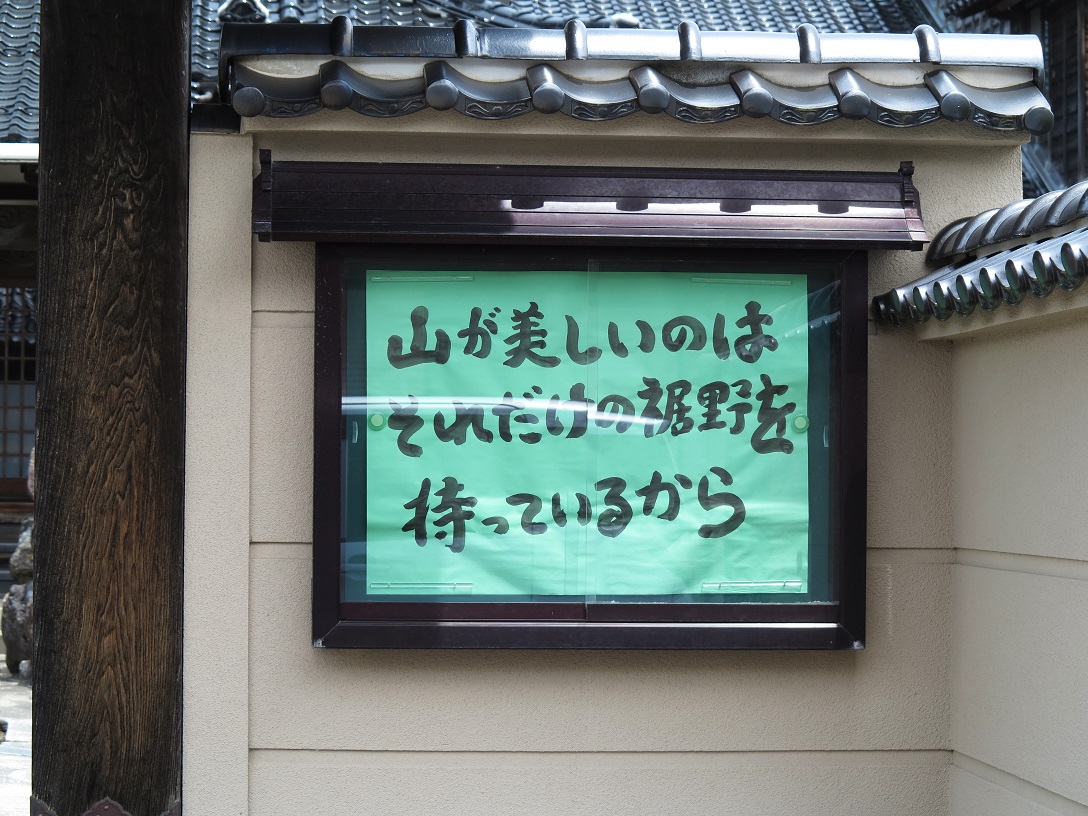 山が美しいのは
それだけの裾野を
持っているから